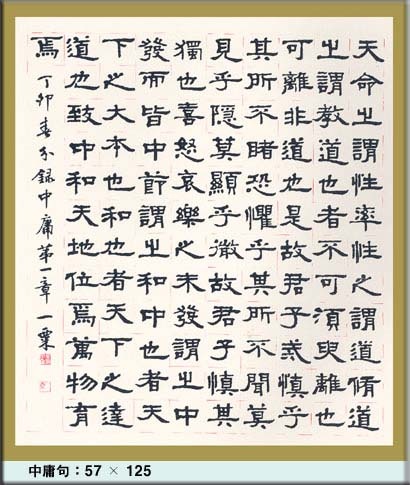 天命之謂性率性之謂道脩道
之謂教道也者不可須臾離也
可離非道也是故君子戒慎乎
其所不睹恐懼乎其所不聞莫
見乎隱莫顯乎微故君子慎其
獨也喜怒哀樂之未發謂之中
發而皆中節謂之和中也者天
下之大本也和也者天下之達
道也致中和天地位焉萬物育
焉 丁卯春分錄中庸第一章 一粟
中庸句：57 × 125